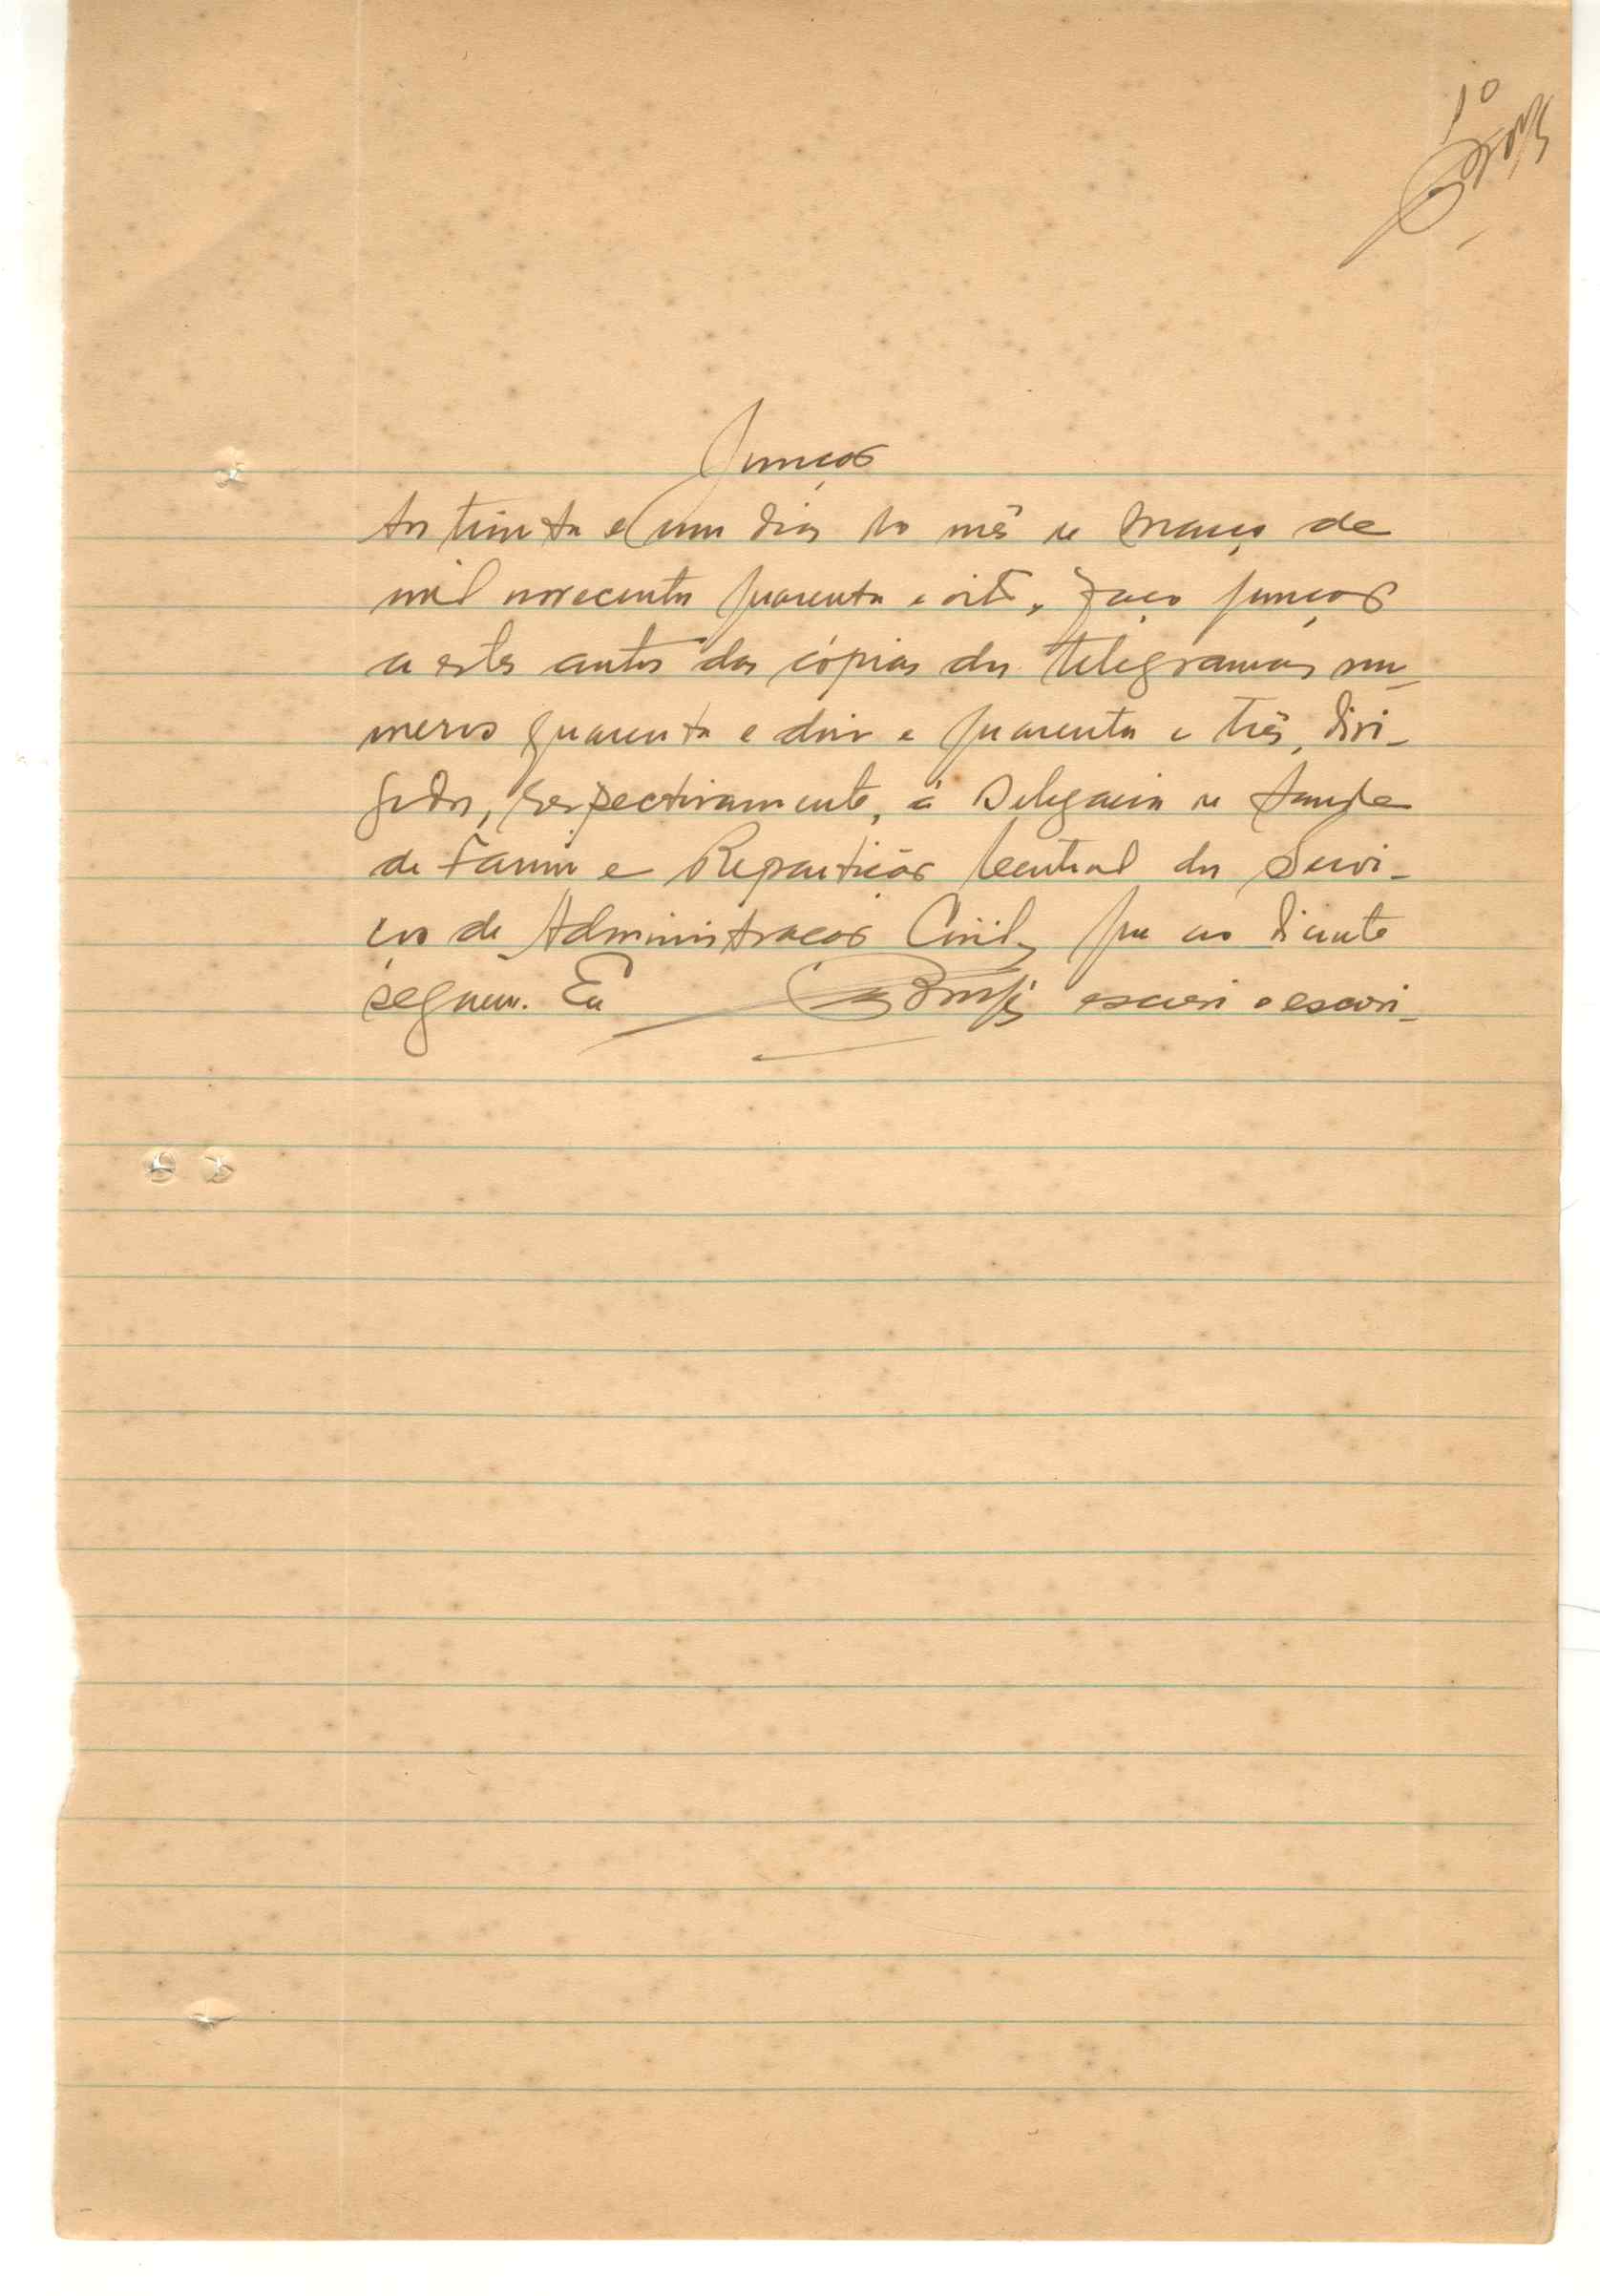 10
Junção
Aos trinta e um dias do mês de Março de
mil novecentos quarenta e oito, faço junção
a estes autos das cópias dos telegramas nú-
meros quarenta e dois e quarenta e três, diri-
gidos, respectivamente, à Delegacia de Saude
de Farim e Repartição Central dos Servi-
ços de Administração Civil, que ao diante
seguem. Eu escrevi o escri-